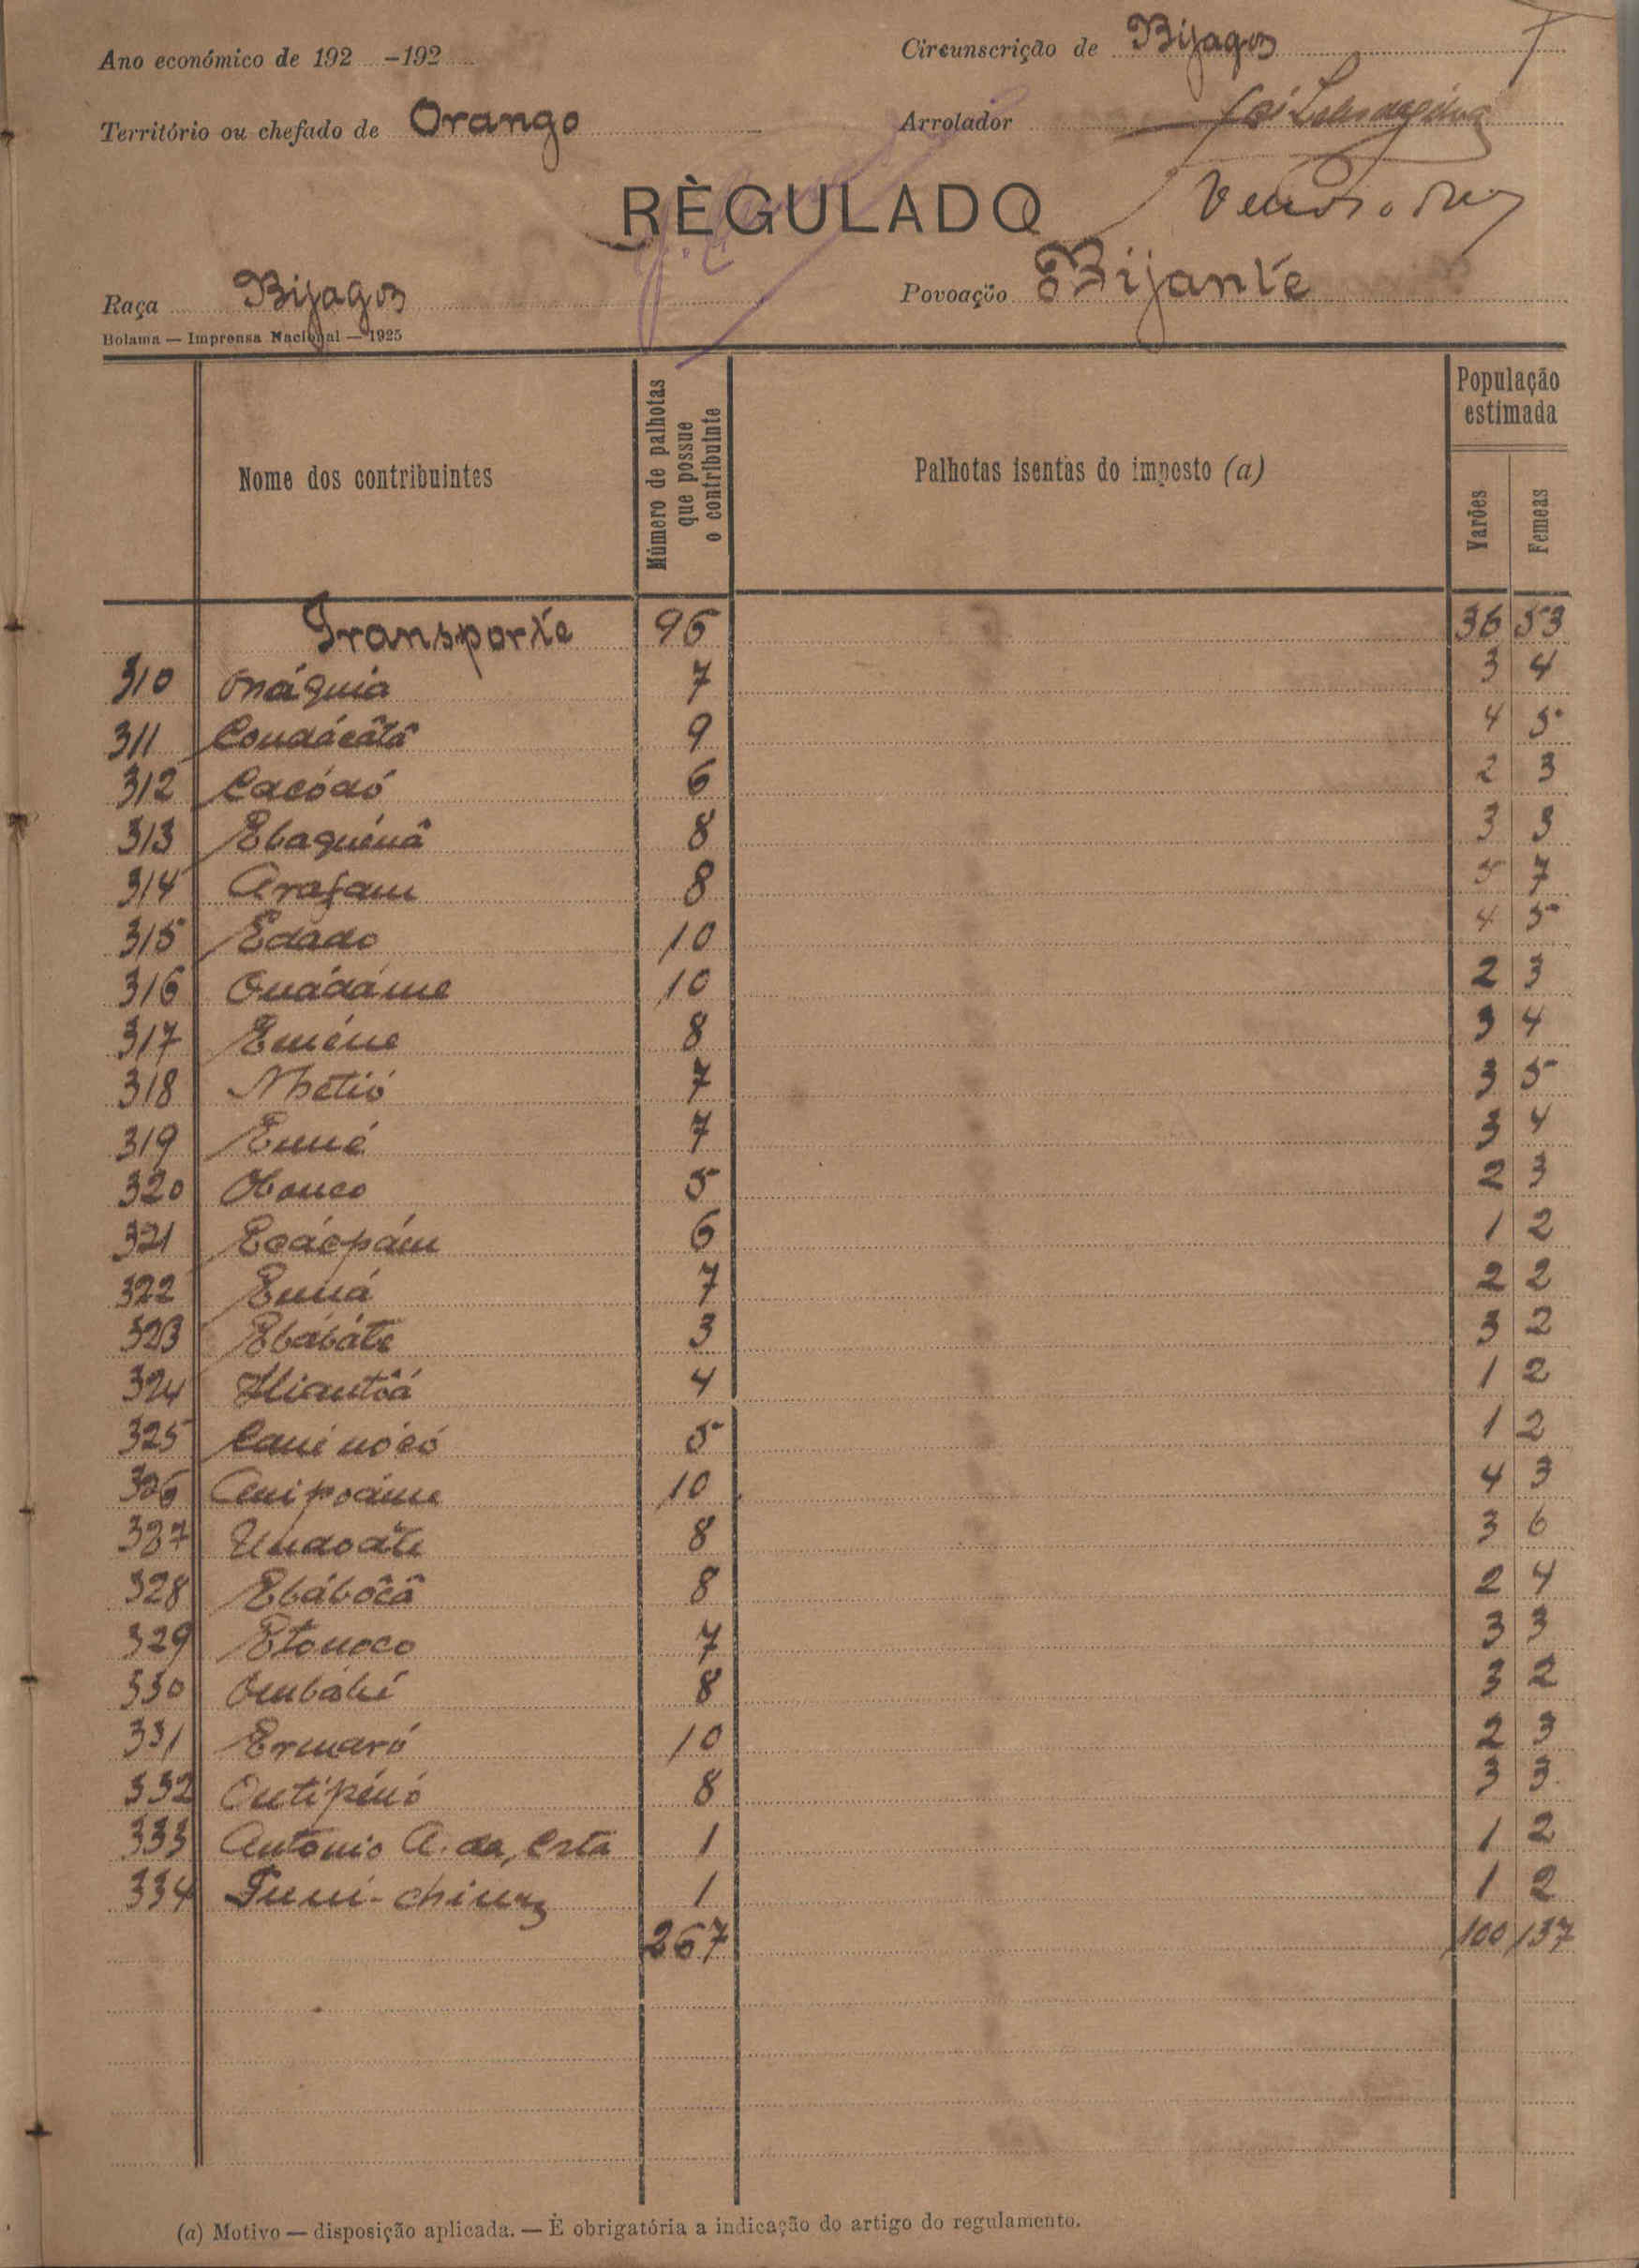 Ano económico de 192 -192
Circunscrição de Bijagoz
Território ou chefado de Orango
Arrolador
RÈGULADO
Raça Bijagoz
Povoação Bijante
Bolama — Imprensa Nacional — 1925
Nome dos contribuintes
Número de palhotas que possue o contribuinte
Palhotas isentas do imposto (a)
População estimada
Varões
Femeas
Transporte 96 36 53
310 Onáquia 7 3 4
311 Condácâtâ 9 4 5
312 Cacódó 6 2 3
313 Ebaquénâ 8 3 3
314 Arafam 8 5 7
315 Edado 10 4 5
316 Onádáme 10 2 3
317 Eméne 8 3 4
318 Nhetió 7 3 5
319 7 3 4
320 Obonco 5 2 3
321 Ecácpám 6 1 2
322 7 2 2
323 Ebábáte 3 3 2
324 4 1 2
325 Caninócó 5 1 2
326 10 4 3
327 Undoáte 8 3 6
328 Ebábôcâ 8 2 4
329 Etonoco 7 3 3
330 8 3 2
331 Ermaró 10 2 3
332 Ontipénó 8 3 3
333 António A. da Csta 1 1 2
334 1 1 2
267 100 137
(a) Motivo — disposição aplicada. — É obrigatória a indicação do artigo do regulamento.